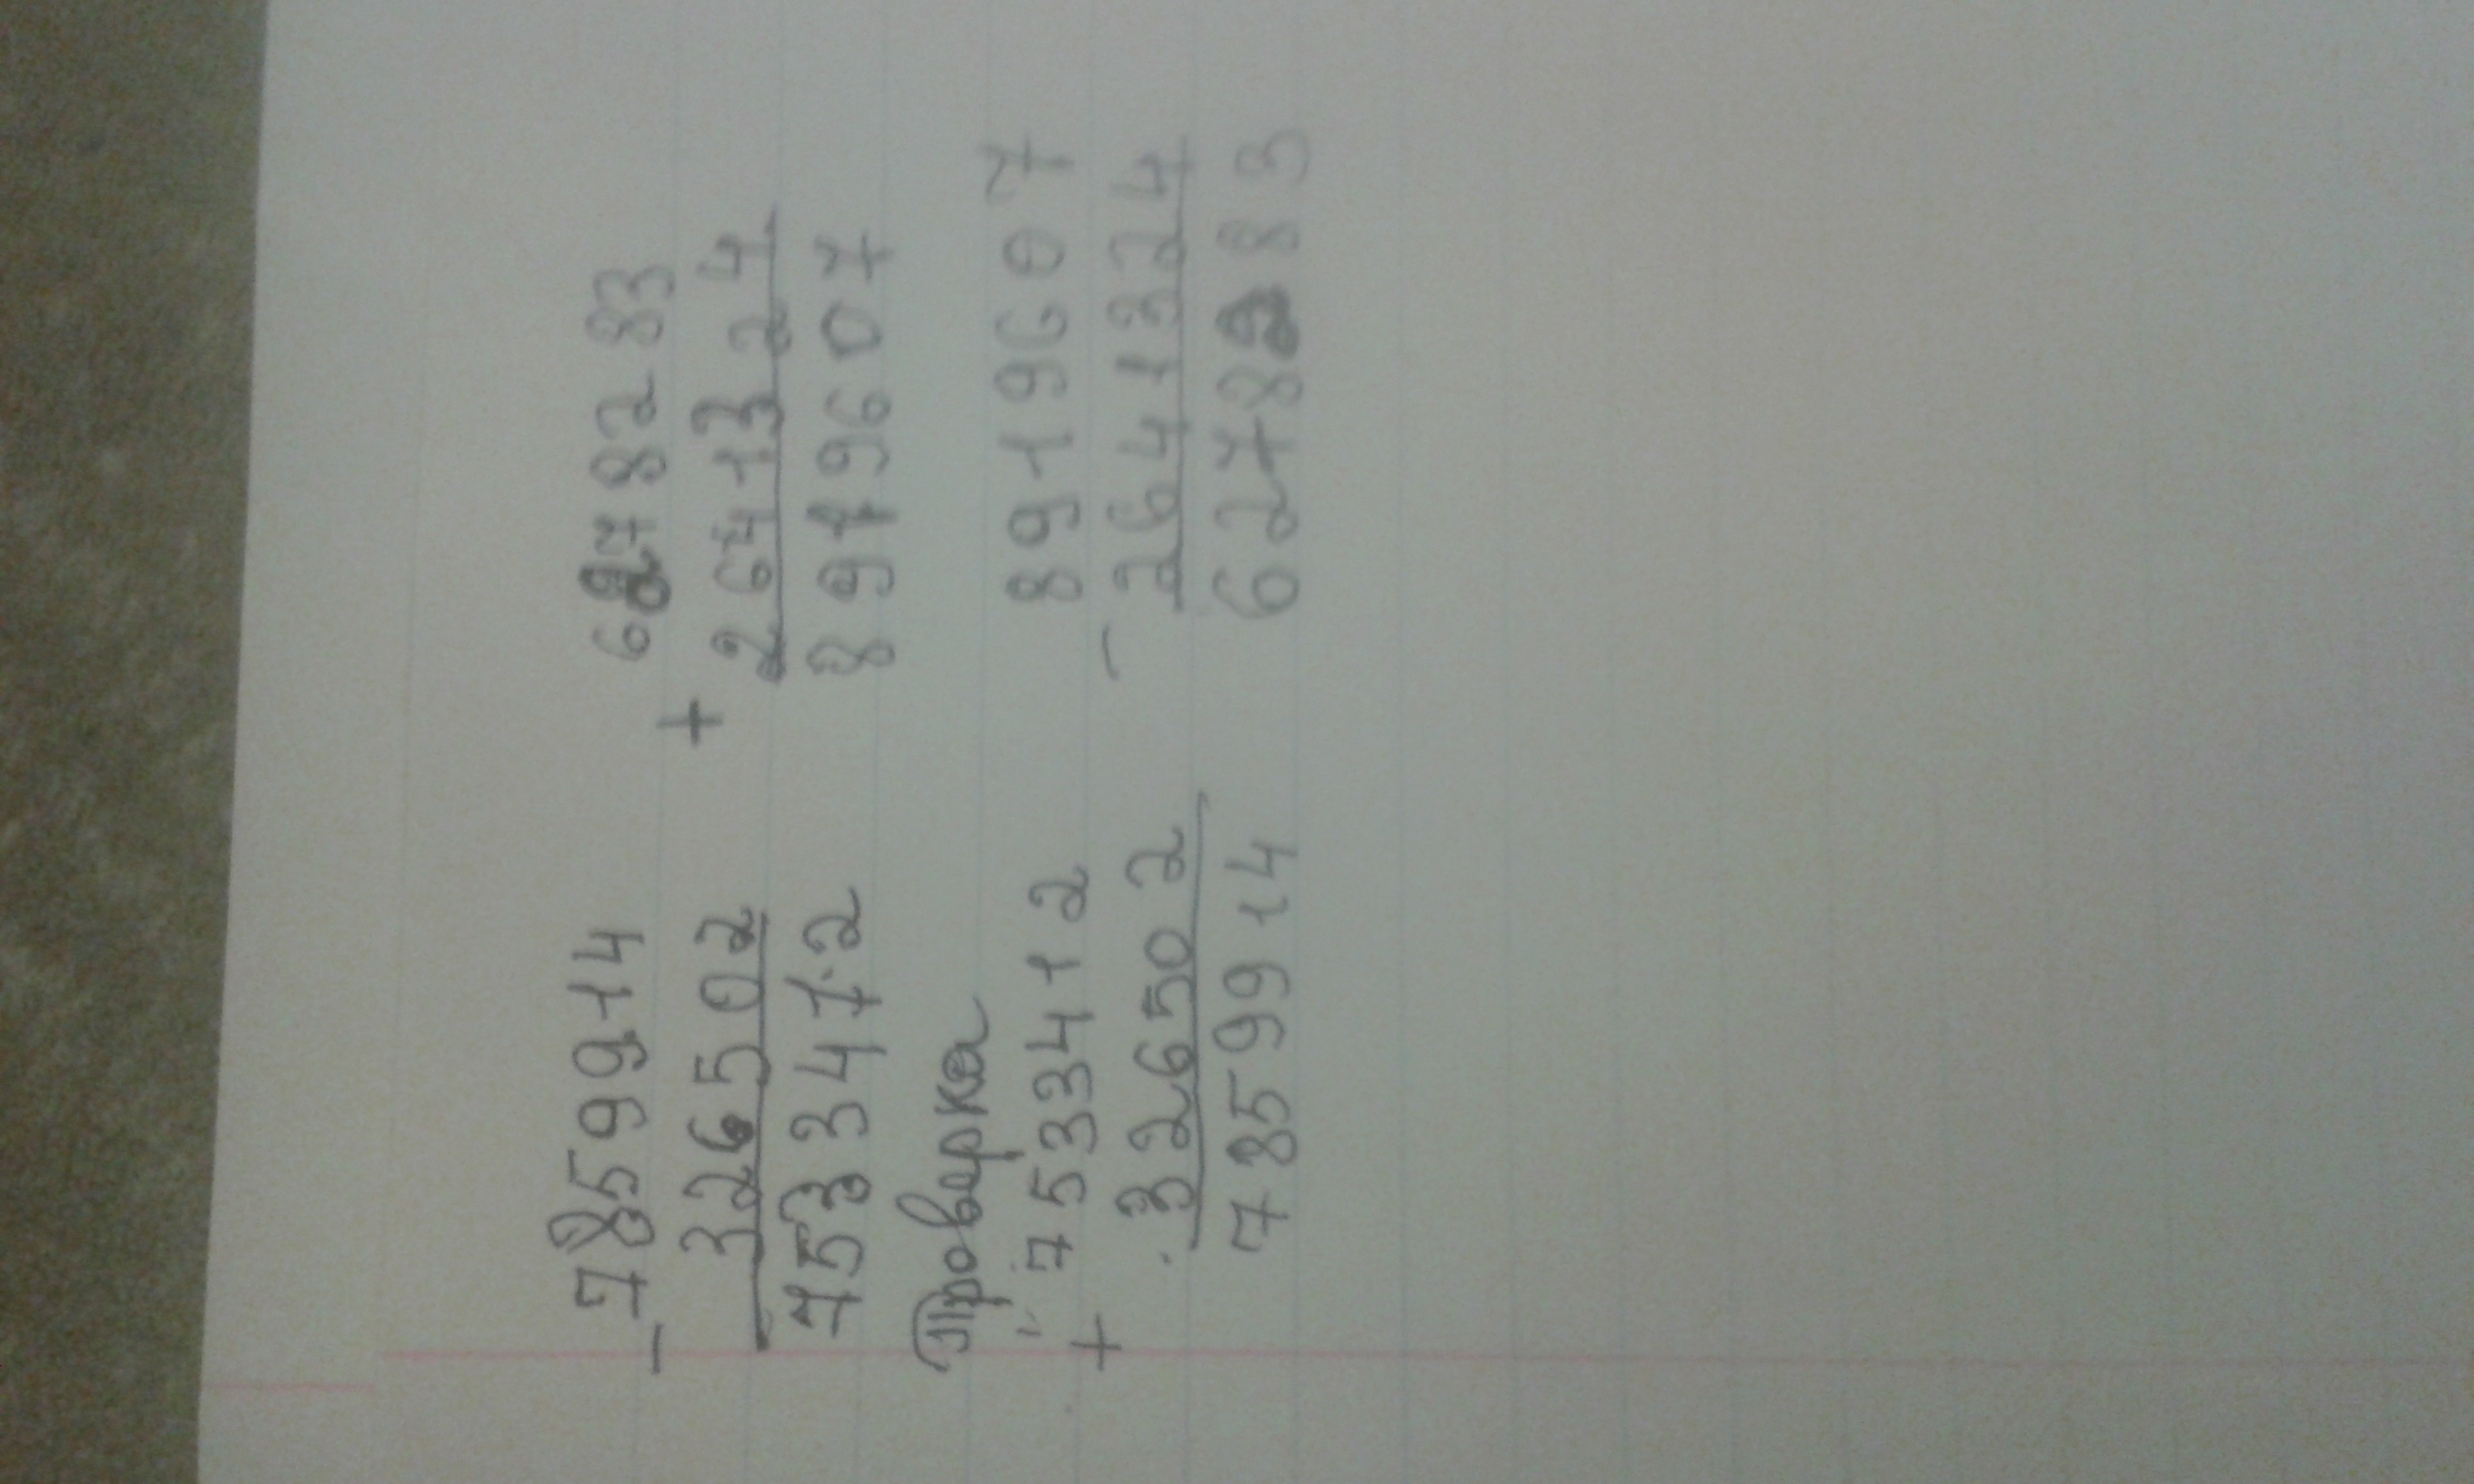 7859914
-
326502
7533412
Проверка
7533412
+
326502
7859914
6278283
+
2641324
8919607
8919607
-
2641324
6278283